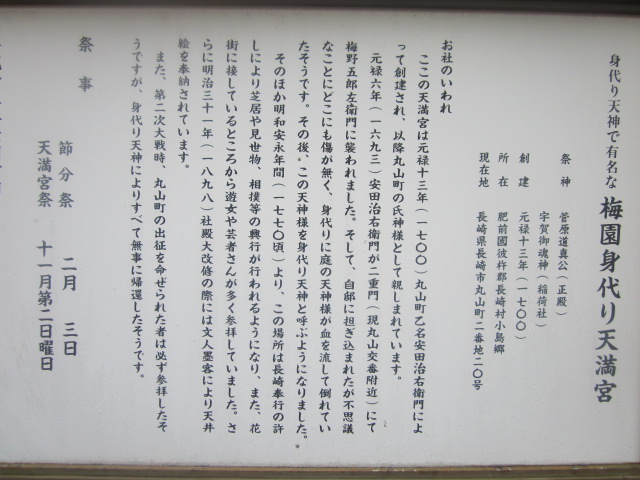 身代り天神で有名な 梅園身代り天満宮
祭神 菅原道真公(正殿)
宇賀御魂神(稲荷社)
創建 元禄十三年(一七〇〇)
所在 肥前國彼杵郡長崎村小島郷
現在地 長崎県長崎市丸山町二番地二〇号
お社のいわれ
ここの天満宮は元禄十三年(一七〇〇)丸山町乙名安田治右衛門によ
って創建され、以降丸山町の氏神様として親しまれています。
元禄六年(一六九三)安田治右衛門が二重門(現丸山交番附近)にて
梅野五郎左衛門に襲われました。そして、自邸に担ぎ込まれたが不思議
なことにどこにも傷が無く、身代りに庭の天神様が血を流して倒れてい
たそうです。その後、この天神様を身代り天神と呼ぶようになりました。
そのほか明和安永年間(一七七〇頃)より、この場所は長崎奉行の許
しにより芝居や見世物、相撲等の興行が行われるようになり、また、花
街に接しているところから遊女や芸者さんが多く参拝していました。さ
らに明治三十一年(一八九八)社殿大改修の際には文人墨客により天井
絵を奉納されています。
また、第二次大戦時、丸山町の出征を命ぜられた者は必ず参拝したそ
うですが、身代り天神によりすべて無事に帰還したそうです。
祭事
節分祭 二月 三日
天満宮祭 十一月第二日曜日